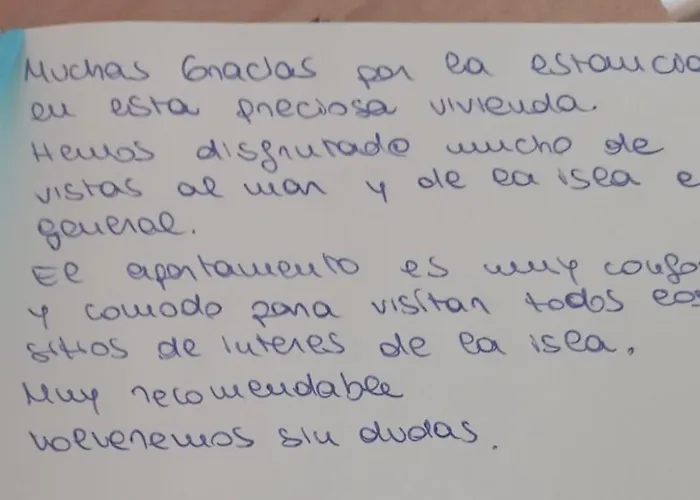 Muchas Gracias por la estancia
en esta preciosa vivienda.
Hemos disfrutado mucho de
vistas al mar y de la isla e
general.
El apartamento es muy confo
y comodo para visitar todos los
sitios de interes de la isla.
Muy recomendable
volveremos sin dudas.